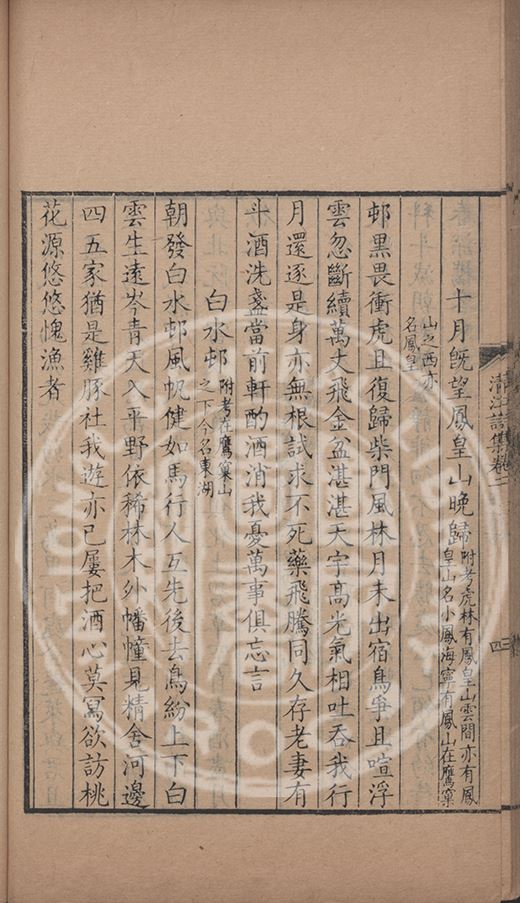 清江詩集卷二
四
十月旣望鳳皇山晚歸附考虎林有鳳皇山雲間亦有鳳
皇山名小鳳海寧有鳳山在鷹窠
山之西亦
名鳳皇
邨黑畏衝虎且復歸柴門風林月未出宿鳥爭且喧浮
雲忽斷續萬丈飛金盆湛湛天宇高光氣相吐吞我行
月還逐是身亦無根試求不死藥飛騰同久存老妻有
斗酒洗盞當前軒酌酒消我憂萬事俱忘言
白水邨附考在鷹窠山
之下今名東湖
朝發白水邨風帆健如馬行人互先後去鳥紛上下白
雲生遠岑青天入平野依稀林木外幡幢見精舍河邊
四五家猶是雞豚社我遊亦已屢把酒心莫寫欲訪桃
花源悠悠愧漁者